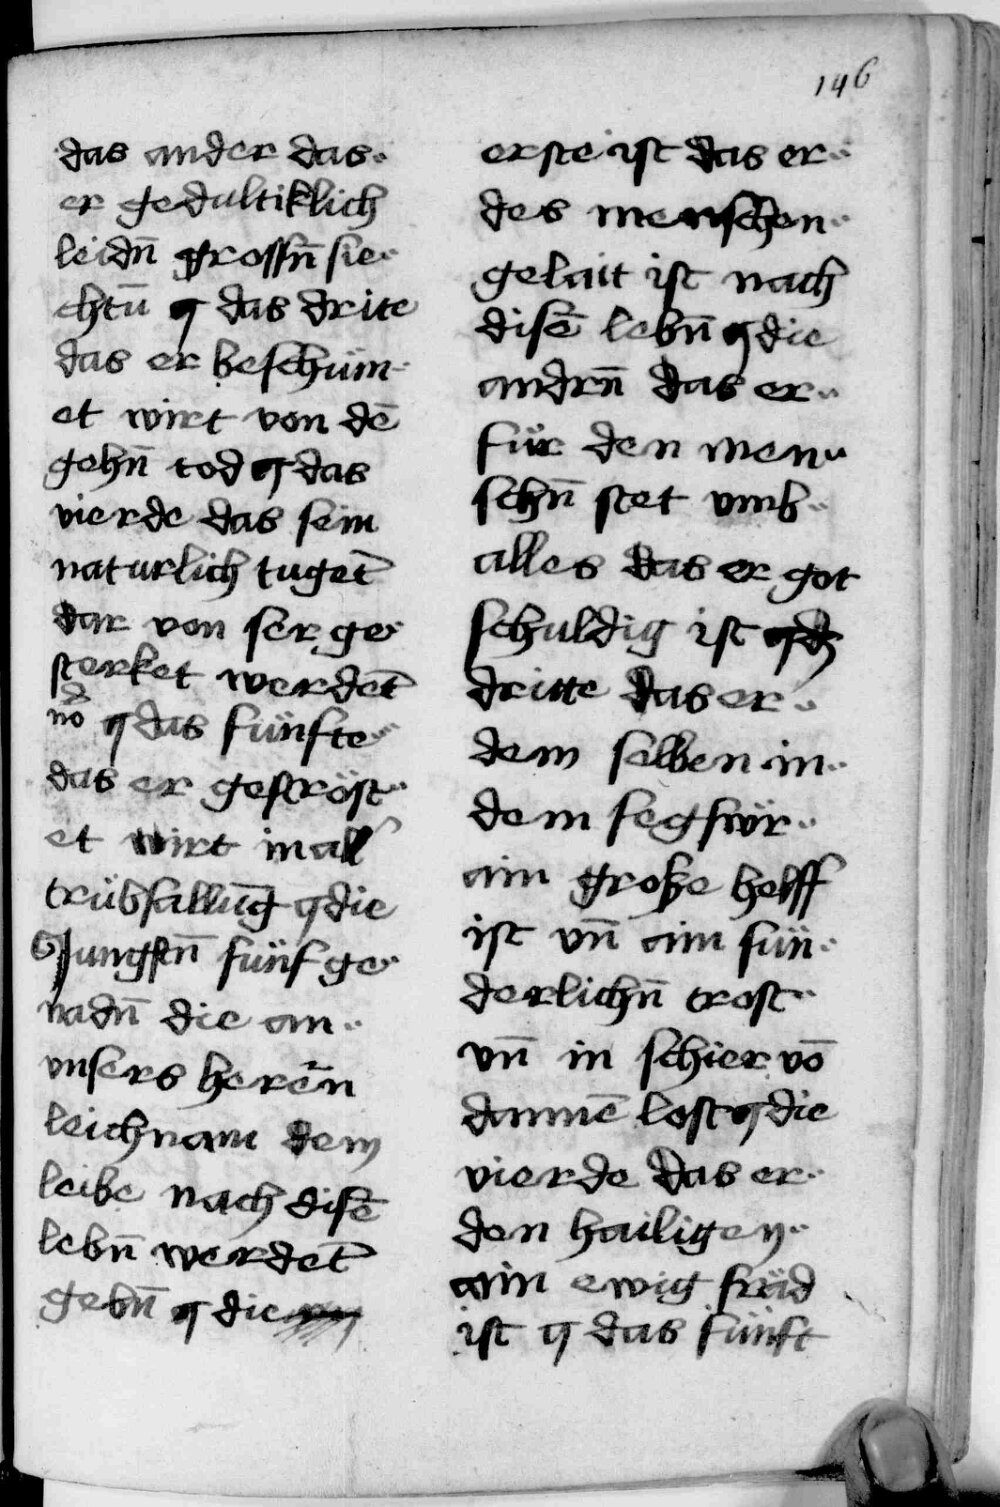 146
das ander das
er gedultiklich
leidn̄ grossn̄ sie
chtū ¶ das drite
das er beschüm
et wirt von dē
gehn̄ tod ¶ das
vierde das sein
naturlich tuget̄
dar von ser ge
sterket werdet̄
¶ das fünfte
das er getröst
et wirt in all
trübsallūg ¶ die
Jungstn̄ fünf ge
nadn̄ die an
vnsers herēn
leichnam dem
leibe nach disē
lebn̄ werdet̄
gebn̄ ¶ die
erste ist das er
des menschen
gelait ist nach
disē lebn̄ ¶ die
andrn̄ das er
für den men
schn̄ stet vmb
alles das er got
schuldig ist ¶ dʒ
dritte das er
dem selben in
dem fegfwr
ain große helff
ist vn̄ ain sün
derlichn̄ trost
vn̄ in schier vō
dannē lost ¶ die
vierde das er
den hailigen
ain ewig fräd
ist ¶ das fünft